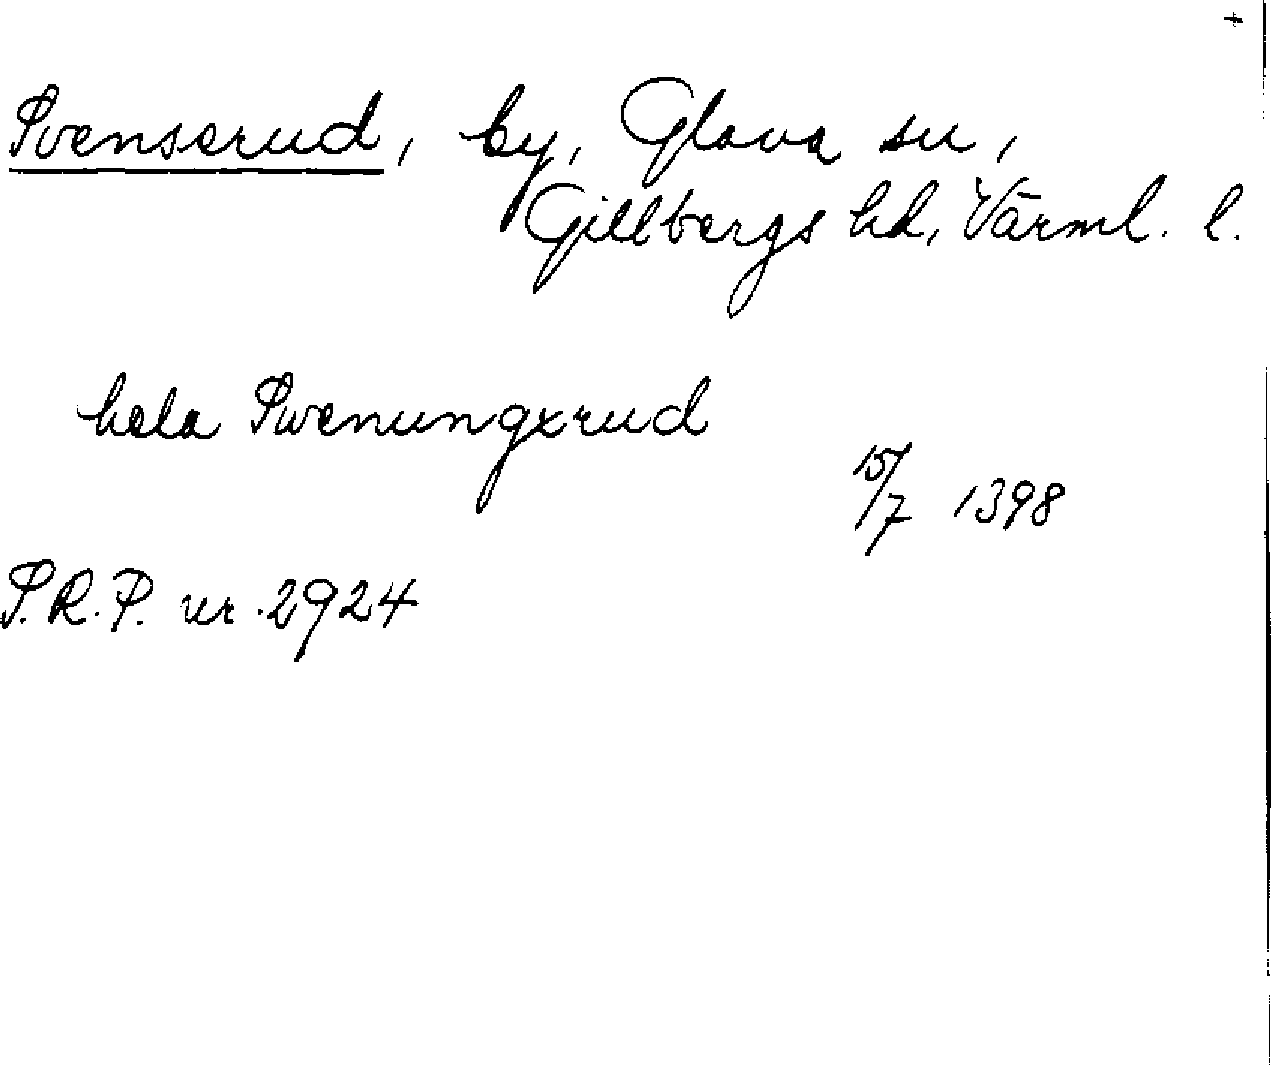 +
Svenserud, by, Glava sn,
Gillbergs hd, Värml. l.
hela Swenungxrud
15/7 1398
S.R.P. nr. 2924